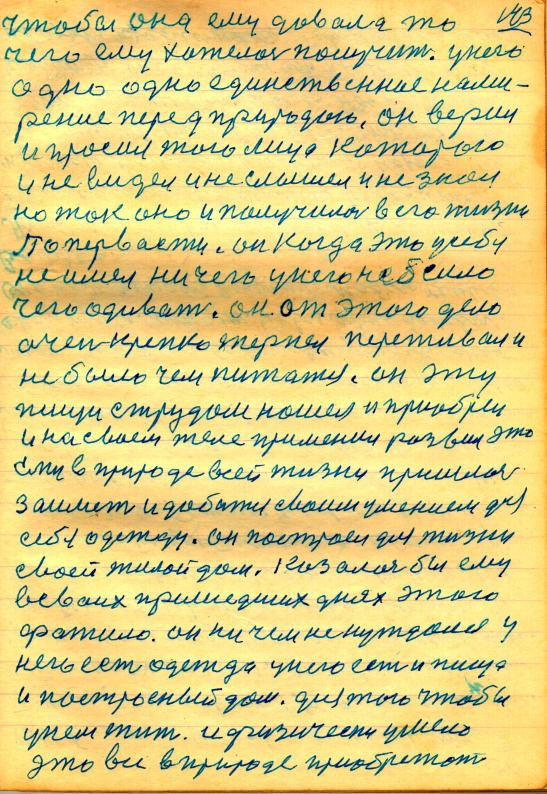 143
чтобы она ему давала то
чего ему хателоя получит. унего
одно одно единственное нами-
рение перед природою, он верил
и просил того лица каторого
и не видел и не слышел и не знал
но так оно и получилоя в его жизни
Попервасти. он когда это у себя
не имел ничего у него не было
чего одиват. он от этого дело
очен крепко терпел переживал и
не было чем питатя. он эту
пищу струдом нашел и приобрел
и на своем теле применил развил это
ему в природе всей жизни пришлоя
заимет и добатя своим умением для
себя одежду. он построел для жизни
своей жилой дом. Казалоя бы ему
в своих пришедших днях этого
фатило. он ни чем не нуждался у
него ест одежда у него ест и пища
и построеный дом. для того чтобы
у нем жит. и физически умело
это все в природе приобретат